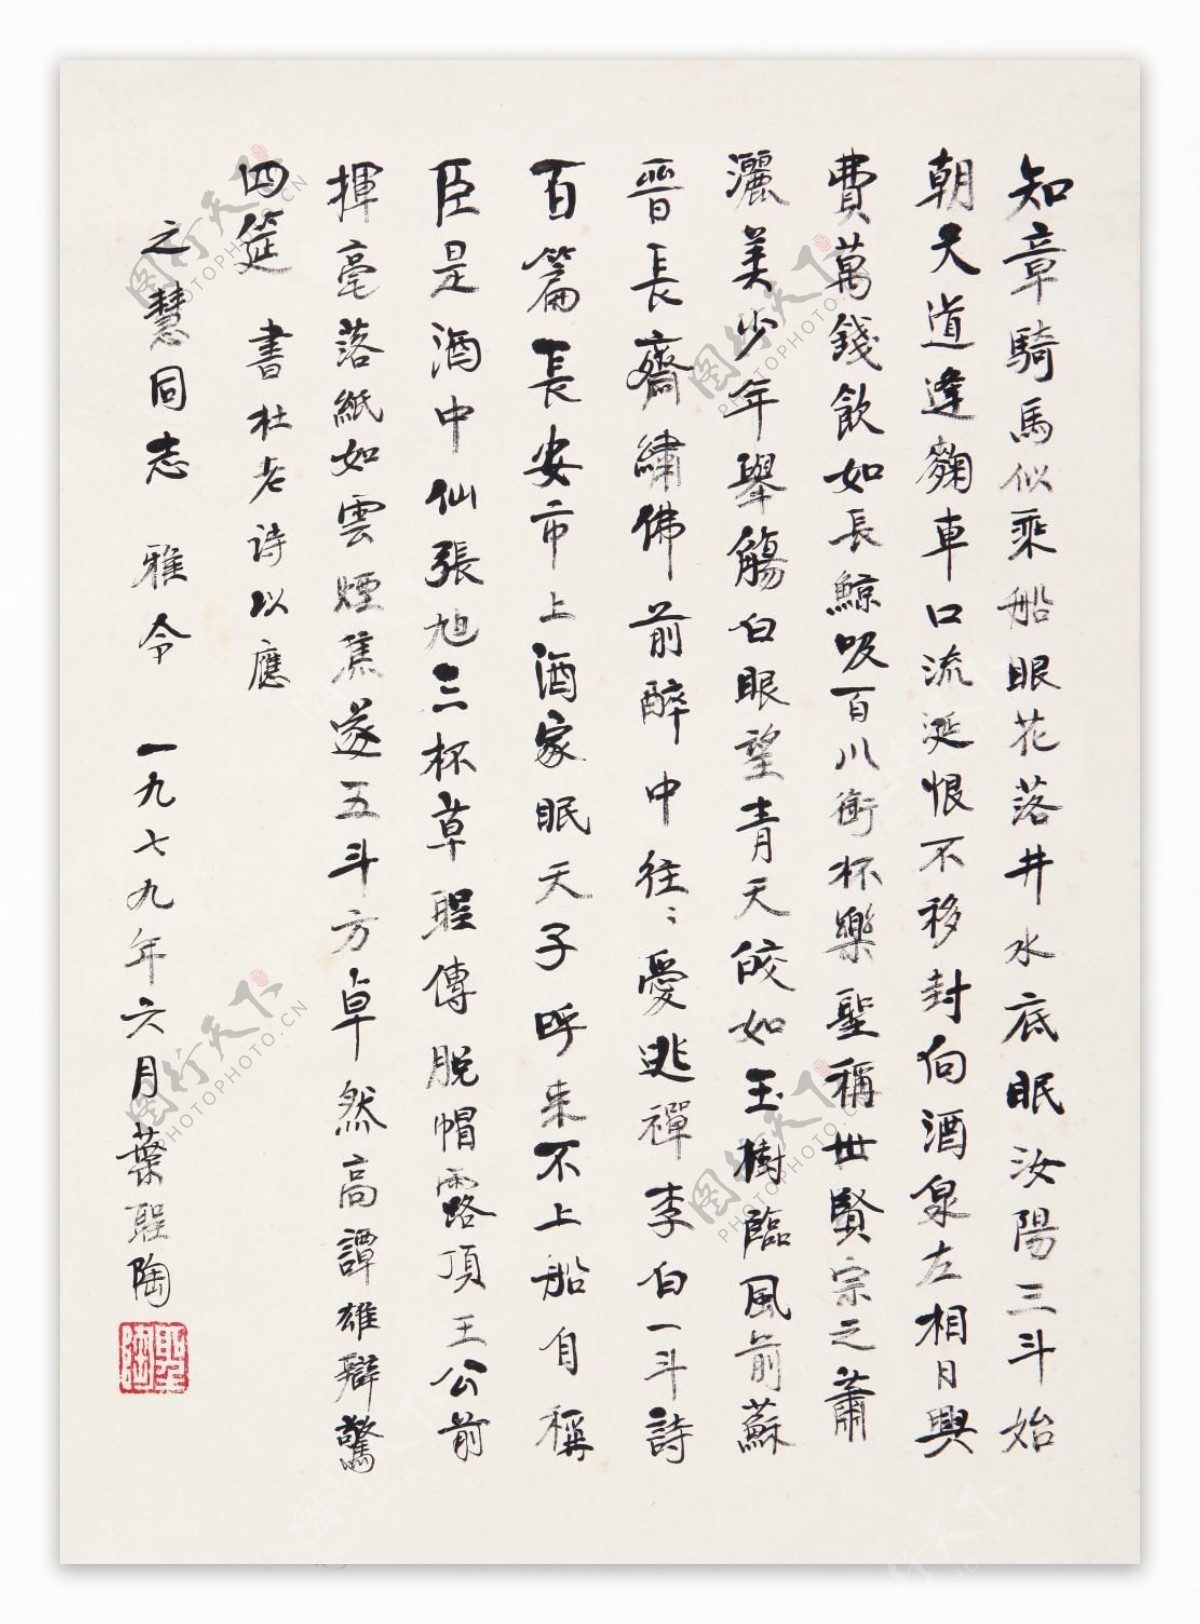 知章騎馬似乘船眼花落井水底眠汝陽三斗始
朝天道逢麴車口流涎恨不移封向酒泉左相日興
費萬錢飲如長鯨吸百川銜杯樂聖稱世賢宗之蕭
灑美少年舉觴白眼望青天皎如玉樹臨風前蘇
晉長齋繡佛前醉中往〻愛逃禪李白一斗詩
百篇長安市上酒家眠天子呼来不上船自稱
臣是酒中仙張旭三杯草聖傳脫帽露頂王公前
揮毫落紙如雲煙焦遂五斗方卓然高譚雄辯驚
四筵 書杜老诗以應
之慧同志 雅令 一九七九年六月葉聖陶
聖陶
图行天下
PHOTOPHOTO.CN